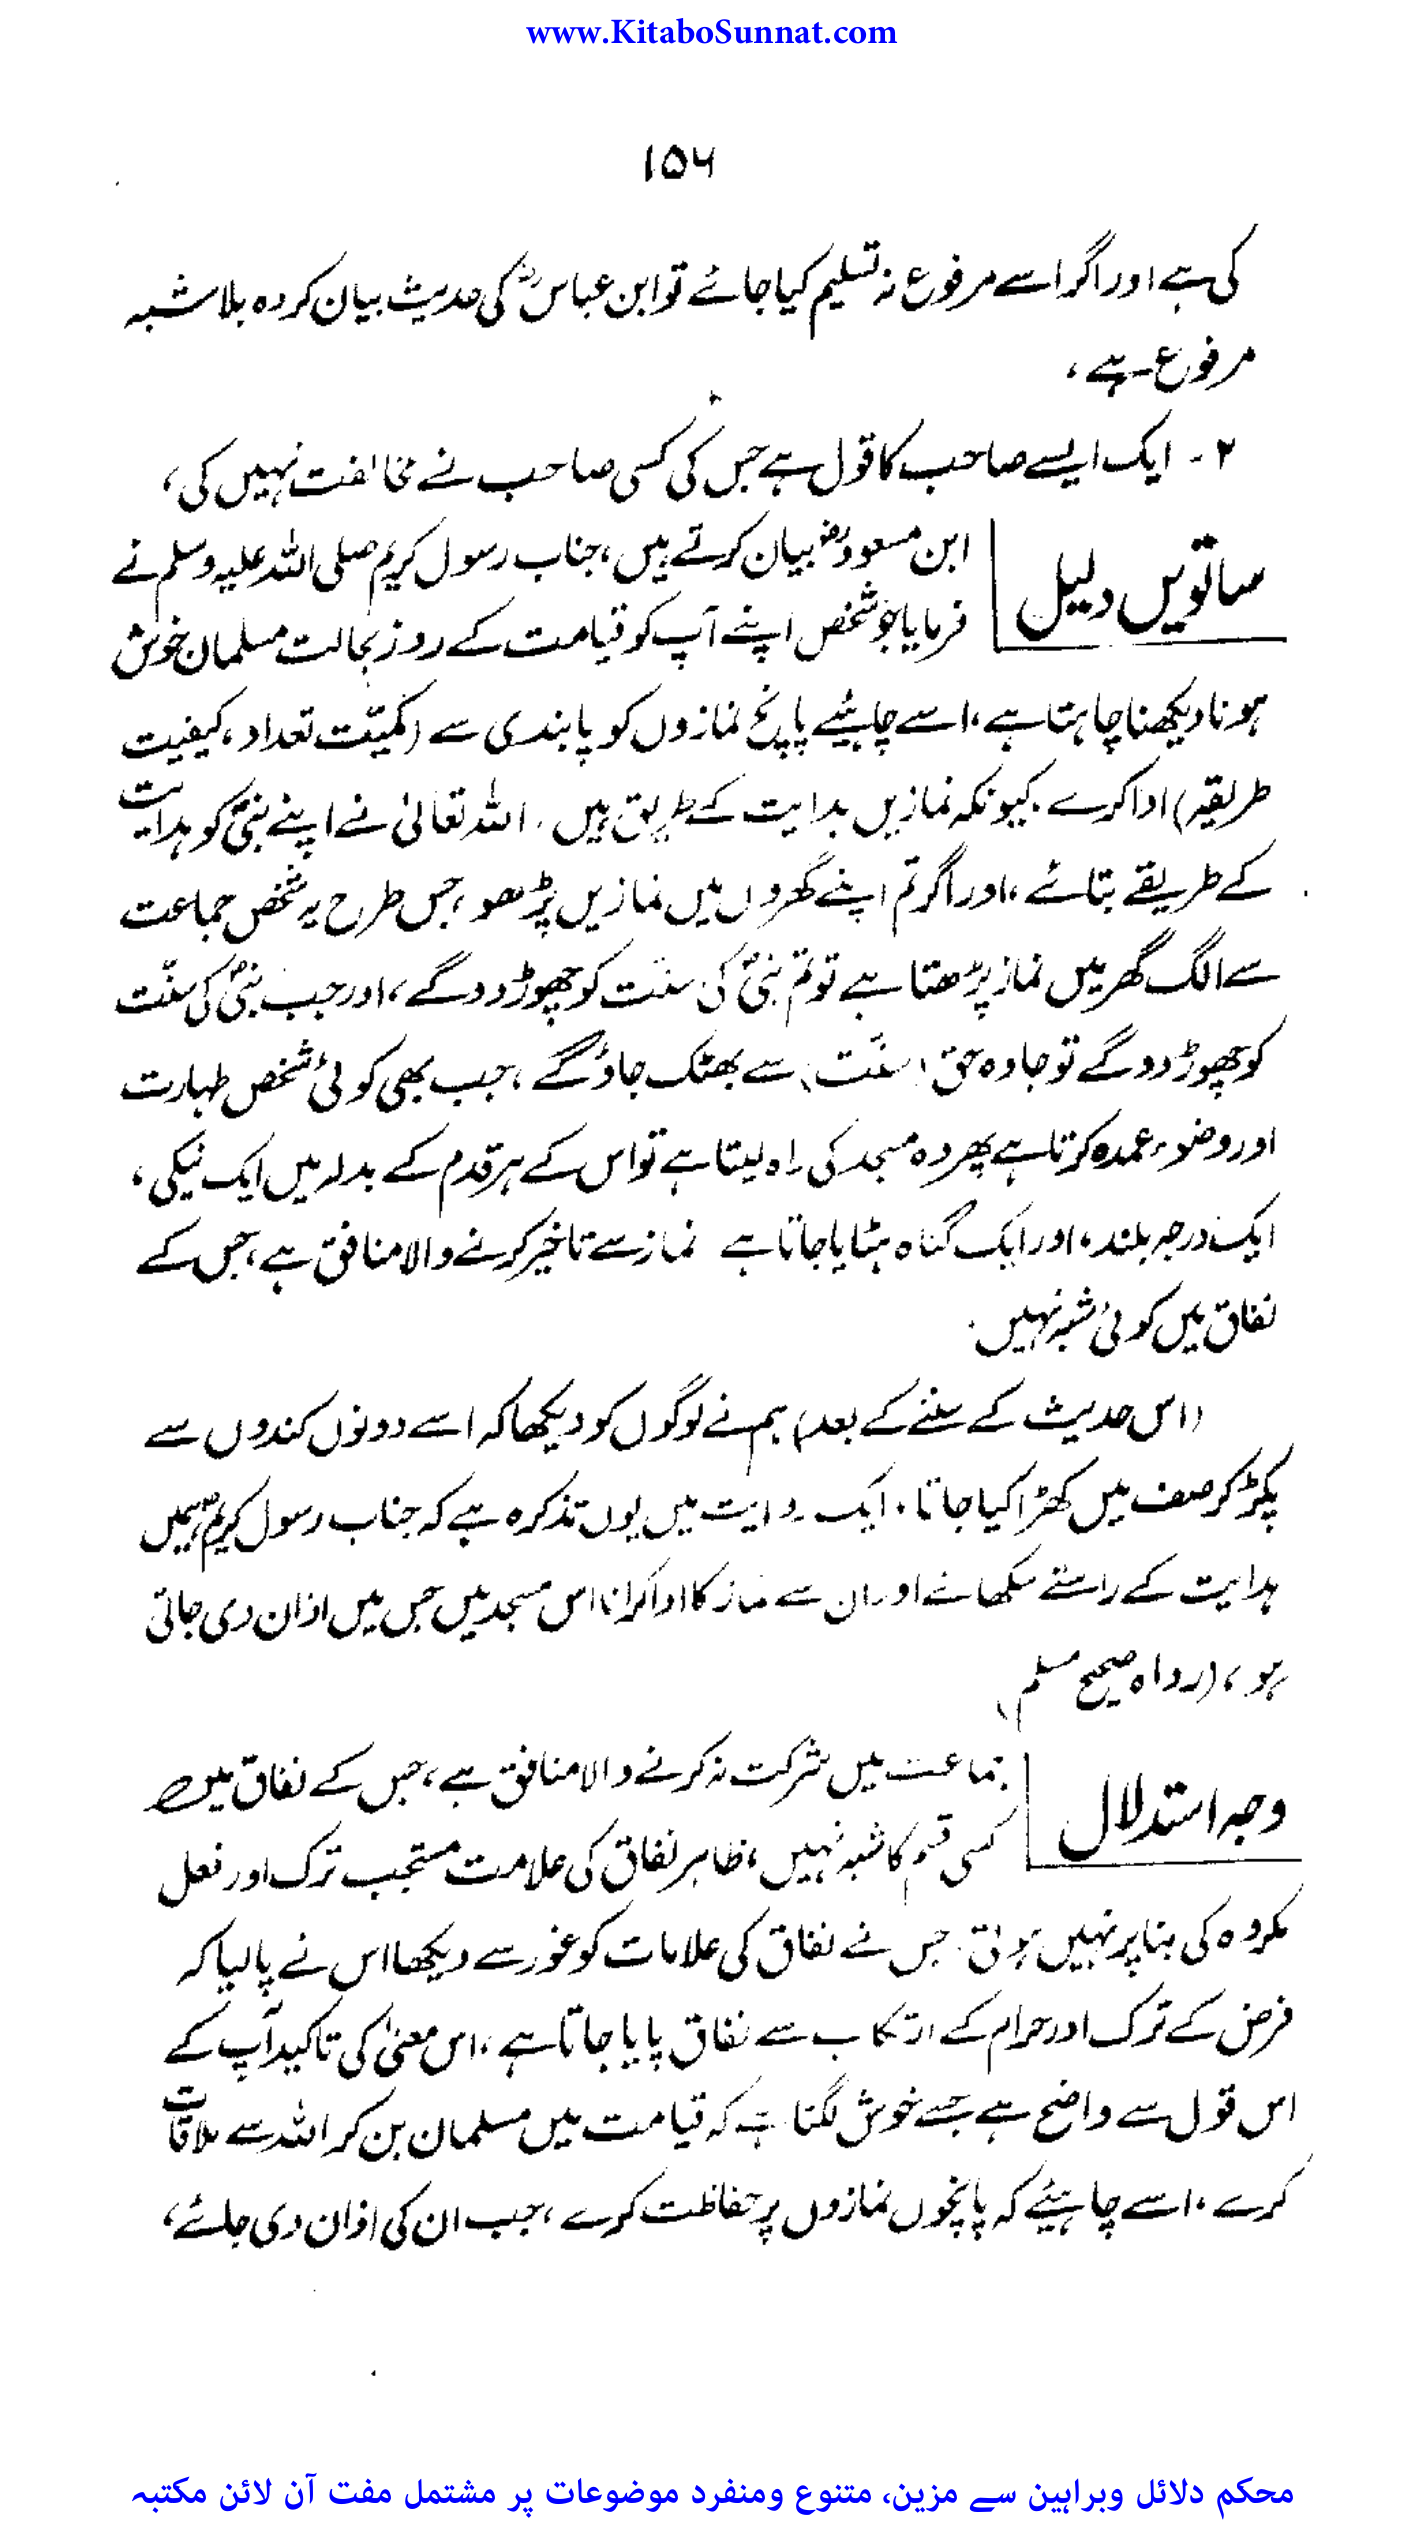 www.KitaboSunnat.com
۱۵۶
کی ہے اور اگر اسے مرفوع نہ تسلیم کیا جائے تو ابن عباسؓ کی حدیث بیان کردہ بلا شبہ
مرفوع ہے ،
۲- ایک ایسے صاحب کا قول ہے جس کی کسی صاحب نے مخالفت نہیں کی ،
ساتویں دلیل
ابن مسعودؓ بیان کرتے ہیں ، جناب رسول کریم صلی اللہ علیہ وسلم نے
فرمایا جو شخص اپنے آپ کو قیامت کے روز بحالت مسلمان خوش
ہونا دیکھنا چاہتا ہے ، اسے چاہئیے پانچ نمازوں کو پابندی سے (کمیّت تعداد ، کیفیت
طریقہ) ادا کرے . کیونکہ نمازیں ہدایت کے طریق ہیں . اللہ تعالیٰ نے اپنے نبیؐ کو ہدایت
کے طریقے بتائے ، اور اگر تم اپنے گھروں میں نمازیں پڑھو ، جس طرح یہ شخص جماعت
سے الگ گھر میں نماز پڑھتا ہے تو تم نبیؐ کی سنّت کو چھوڑ دو گے ، اور جب نبیؐ کی سنّت
کو چھوڑ دو گے تو جادہ حق (سنّت) سے بھٹک جاؤ گے ، جب بھی کوئی شخص طہارت
اور وضوء عمدہ کرتا ہے پھر وہ مسجد کی راہ لیتا ہے تو اس کے ہر قدم کے بدلہ میں ایک نیکی ،
ایک درجہ بلند ، اور ایک گناہ ہٹایا جاتا ہے نماز سے تاخیر کرنے والا منافق ہے ، جس کے
نفاق میں کوئی شبہ نہیں .
(اس حدیث کے سننے کے بعد) ہم نے لوگوں کو دیکھا کہ اسے دونوں کندوں سے
پکڑ کر صف میں کھڑا کیا جاتا . ایک روایت میں یوں تذکرہ ہے کہ جناب رسول کریمؐ ہمیں
ہدایت کے راستے سکھاتے اور ان سے نماز کا ادا کرانا اس مسجد میں جس میں اذان دی جاتی
ہو ، (رواہ صحیح مسلم)
وجہ استدلال
جماعت میں شرکت نہ کرنے والا منافق ہے ، جس کے نفاق میں
کسی قسم کا شبہ نہیں ، ظاہر نفاق کی علامت مستحب ترک اور فعل
مکروہ کی بنا پر نہیں ہوتی . جس نے نفاق کی علامات کو غور سے دیکھا اس نے پا لیا کہ
فرض کے ترک اور حرام کے ارتکاب سے نفاق پایا جاتا ہے ، اس معنیٰ کی تاکید آپ کے
اس قول سے واضح ہے جسے خوش لگتا ہے کہ قیامت میں مسلمان بن کر اللہ سے ملاقات
کرے . اسے چاہئیے کہ پانچوں نمازوں پر حفاظت کرے ، جب ان کی اذان دی جائے ،
محکم دلائل وبراہین سے مزین، متنوع ومنفرد موضوعات پر مشتمل مفت آن لائن مکتبہ